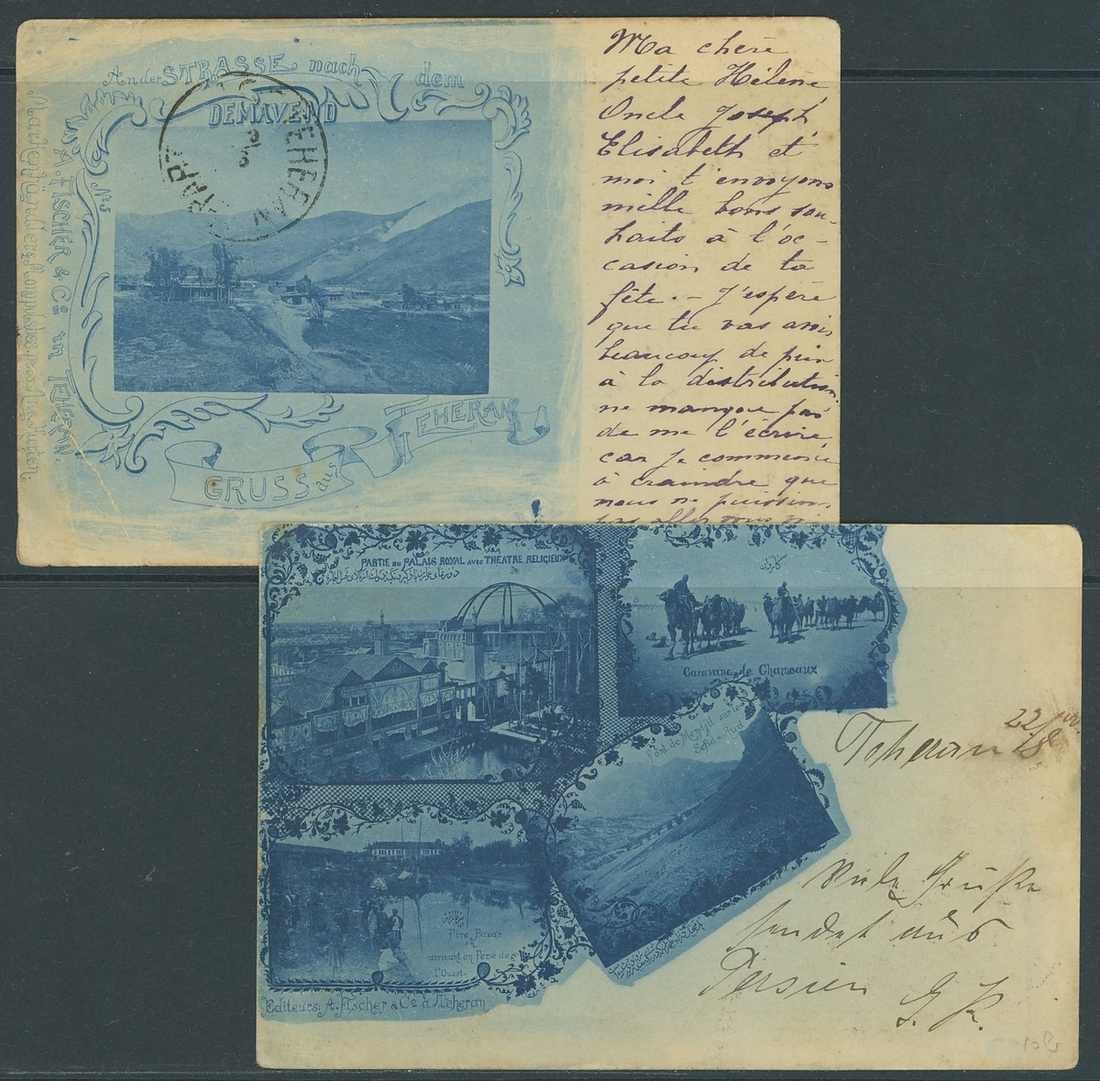 An der STRASSE nach dem
DEMAVEND
TEHERAN
DEPART
3
5
Nr 5
A. FISCHER & Co in TEHERAN.
GRUSS aus TEHERAN
Ma chère
petite Hélène
Oncle Joseph
Elisabeth et
moi t'envoyons
mille bons sou-
haits à l'oc-
casion de ta
fête. - J'espère
que tu vas avoir
beaucoup de prix
à la distribution
ne manque pas
de me l'écrire,
car je commence
à craindre que
nous ne puissions
pas aller
PARTIE DU PALAIS ROYAL AVEC THEATRE RELIGIEUX
کاروان
Caravane de Chameaux
Pont de Mendjil sur le
Sefid-Rud
Pire Bazar
arrivant en Perse de
l'Ouest.
Editeurs: A. Fischer & Co à Teheran
Teheran 22/
Viele Grüße
sendet aus
Persien
G. R.